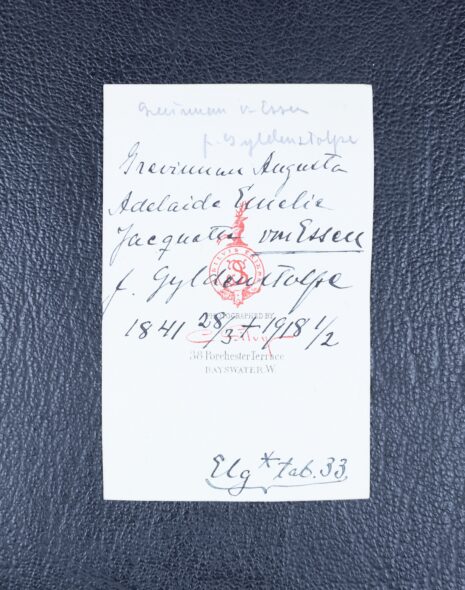 Grevinnan v. Essen
f. Gyldenstolpe
Grevinnan Augusta
Adelaide Emelie
Jacquette von Essen
f. Gyldenstolpe
1841 28/3 + 1918 1/2
PHOTOGRAPHED BY
38 Porchester Terrace
BAYSWATER. W.
Elg* tab. 33.